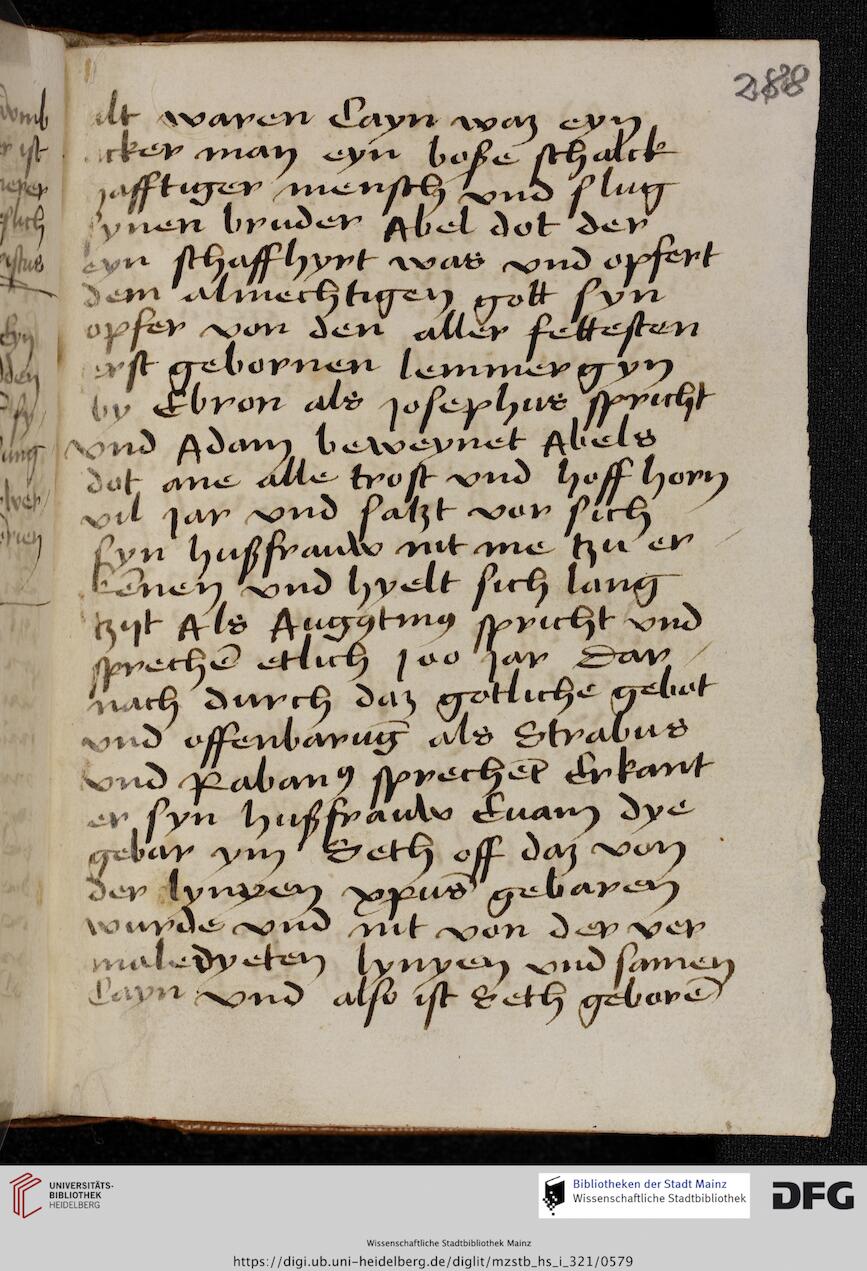 288
alt waren Cayn waz eyn
acker man eyn boße schalck
hafftiger mensch vnd slug
synen bruder Abel dot der
eyn schaffhyrt was vnd opfert
dem almechtigen gott syn
opfer von den aller fettesten
erst gebornen lemmer gyn
by Ebron als josephus spricht
vnd Adam beweynet Abels
dot ane alle trost vnd hoff horn
vil jar vnd satzt vor sich
syn hußfrauw nit me tzu er
kēnen vnd hyelt sich lang
tzijt Als Augꝯtinꝯ spricht vnd
sprechē etlich joo jar Dar
nach durch daz gotliche gebot
vnd offenbarūg als Strabus
vnd Rabanꝯ sprechēt Erkant
er syn hußfrauw Euam dye
gebar ym Seth off daz von
der lynyen xp̄us gebaren
wurde vnd nit von der ver
maledyeten lynyen vnd samen
Cayn vnd also ist Seth geborē
UNIVERSITÄTS-
BIBLIOTHEK
HEIDELBERG
Bibliotheken der Stadt Mainz
Wissenschaftliche Stadtbibliothek
DFG
Wissenschaftliche Stadtbibliothek Mainz
https://digi.ub.uni-heidelberg.de/diglit/mzstb_hs_i_321/0579